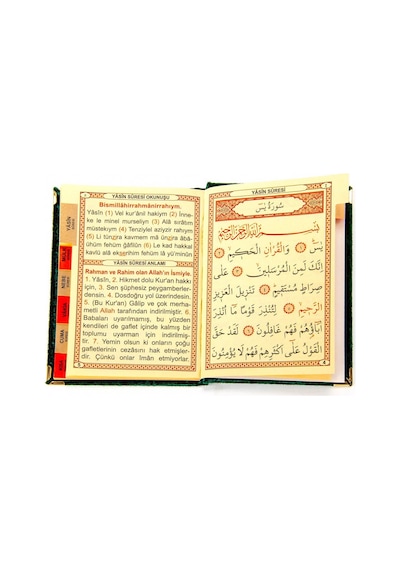 YÂSÎN SÛRESİ OKUNUŞU
Bismillâhirrahmânirrahıym.
Yâsîn (1) Vel kur'ânil hakiym (2) İnne-
ke le minel murseliyn (3) Alâ sırâtım
müstekıym (4) Tenziylel aziyzir rahıym
(5) Li tünzira kavmem mâ ünzira âbâ-
ühüm fehüm ğâfilûn (6) Le kad hakkal
kavlü alâ ekserihim fehüm lâ yü'minûn
YÂSÎN SÛRESİ ANLAMI
Rahman ve Rahim olan Allah'ın İsmiyle.
1. Yâsîn, 2. Hikmet dolu Kur'an hakkı
için, 3. Sen şüphesiz peygamberler-
densin. 4. Dosdoğru yol üzerindesin.
5. (Bu Kur'an) Gâlip ve çok merha-
metli Allah tarafından indirilmiştir. 6.
Babaları uyarılmamış, bu yüzden
kendileri de gaflet içinde kalmış bir
toplumu uyarman için indirilmiş-
tir. 7. Yemin olsun ki onların çoğu
gafletlerinin cezasını hak etmişler-
dir. Çünkü onlar îmân etmiyorlar.
YÂSÎN
CUMA
YÂSÎN SÛRESİ
سُورَةُ يٰسٓ
بِسْمِ اللّٰهِ الرَّحْمٰنِ الرَّحِيمِ
يٰسٓ ۝ وَالْقُرْاٰنِ الْحَكِيمِ ۝
اِنَّكَ لَمِنَ الْمُرْسَلِينَ ۝ عَلٰى
صِرَاطٍ مُسْتَقِيمٍ ۝ تَنْزِيلَ الْعَزِيزِ
الرَّحِيمِ ۝ لِتُنْذِرَ قَوْمًا مَٓا اُنْذِرَ
اٰبَٓاؤُهُمْ فَهُمْ غَافِلُونَ ۝ لَقَدْ حَقَّ
الْقَوْلُ عَلٰٓى اَكْثَرِهِمْ فَهُمْ لَا يُؤْمِنُونَ